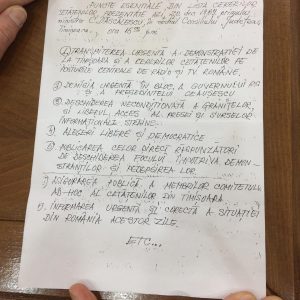 PUNCTE ESENȚIALE DIN LISTA CERERILOR
CETĂȚENILOR PREZENTATE AZI, 20 dec 1989
ministru C. DĂSCĂLESCU, la sediul Consiliului Județean,
Timișoara, ora 15
① TRANSMITEREA URGENTĂ A DEMONSTRAȚIEI DE
LA TIMIȘOARA ȘI A CERERILOR CETĂȚENILOR PE
POSTURILE CENTRALE DE RADIO ȘI TV. ROMÂNE.
DEMISIA URGENTĂ ÎN BLOC, A GUVERNULUI RSR
ȘI A PREȘEDINTELUI CEAUȘESCU
DESCHIDEREA NECONDIȚIONATĂ A GRANIȚELOR,
ȘI LIBERUL ACCES AL PRESEI ȘI SURSELOR
INFORMAȚIONALE STRĂINE.
ALEGERI LIBERE ȘI DEMOCRATICE
PUBLICAREA CELOR DIRECT RĂSPUNZĂTORI
DE DESCHIDEREA FOCULUI ÎMPOTRIVA DEMON-
STRANȚILOR ȘI PEDEPSIREA LOR
ASIGURAREA PUBLICĂ A MEMBRILOR COMITETULUI
AD-HOC AL CETĂȚENILOR DIN TIMIȘOARA
INFORMAREA URGENTĂ ȘI CORECTĂ A SITUAȚIEI
DIN ROMÂNIA ACESTOR ZILE.
ETC...